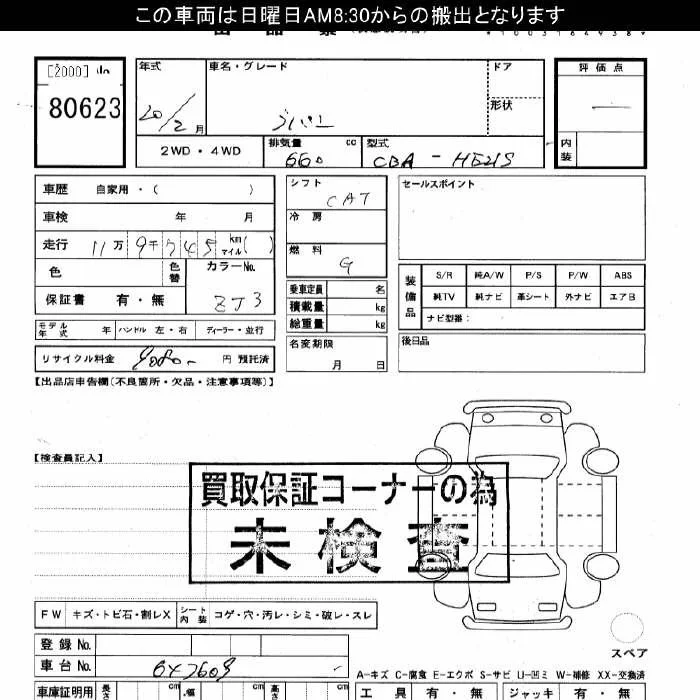 この車両は日曜日AM8:30からの搬出となります
[2000]
80623
年式
20/2月
車名・グレード
ドア
形状
評価点
内装
2WD・4WD
排気量 660 cc
型式
CBA - HE21S
車歴 自家用・( )
車検 年 月
走行 11万 9千 7 4 5 km マイル( )
色
色替
カラーNo.
ZJ3
保証書 有・無
シフト
CAT
冷房
燃料
G
セールスポイント
乗車定員 名
積載量 kg
総重量 kg
装備品
S/R 純A/W P/S P/W ABS
純TV 純ナビ 革シート 外ナビ エアB
ナビ型番:
モデル年式 年 ハンドル 左・右 ディーラー・並行
名変期限
月 日
後日品
リサイクル料金 円 預託済
【出品店申告欄(不良箇所・欠品・注意事項等)】
【検査員記入】
買取保証コーナーの為
未検査
FW キズ・トビ石・割レX シート内装 コゲ・穴・汚レ・シミ・破レ・スレ
スペア
登録No.
車台No.
A-キズ C-腐食 E-エクボ S-サビ U-凹ミ W-補修 XX-交換済
車庫証明用 長さ cm 幅 cm 高さ cm
工具 有・無 ジャッキ 有・無